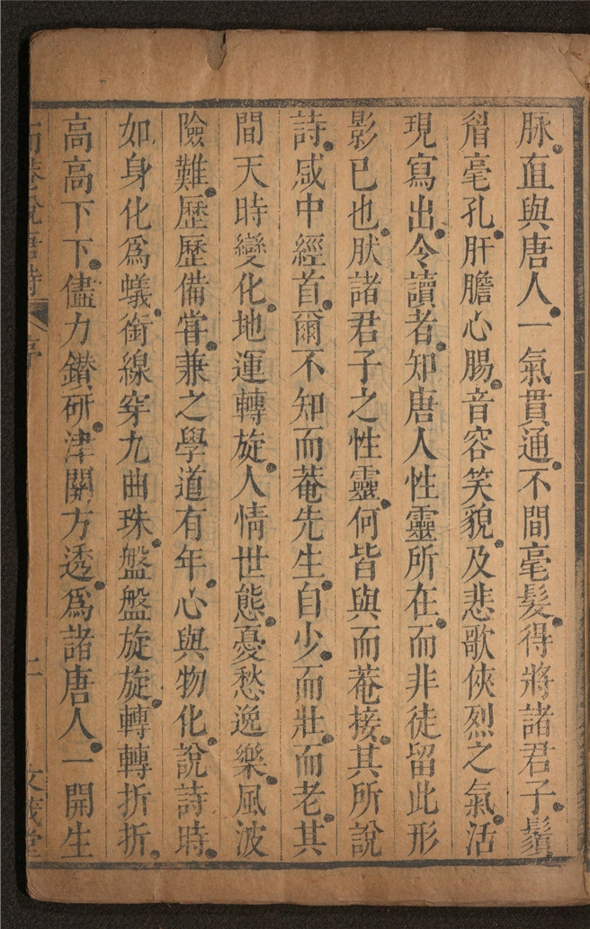 脉。直與唐人。一氣貫通。不間毫髮。得將諸君子。鬚
眉毫孔。肝膽心腸。音容笑貌。及悲歌俠烈之氣。活
現寫出。令讀者。知唐人性靈所在。而非徒留此形
影已也。肰諸君子之性靈。何皆與而菴接。其所說
詩。咸中經首。爾不知而菴先生。自少。而壯。而老。其
間天時變化。地運轉旋。人情世態。憂愁逸樂。風波
險難。歷歷備嘗。兼之學道有年。心與物化。說詩時。
如身化爲蟻。銜線穿九曲珠。盤盤旋旋。轉轉折折。
高高下下。儘力鑚研。津關方透。爲諸唐人。一開生
而菴說唐詩
序
二
文茂堂